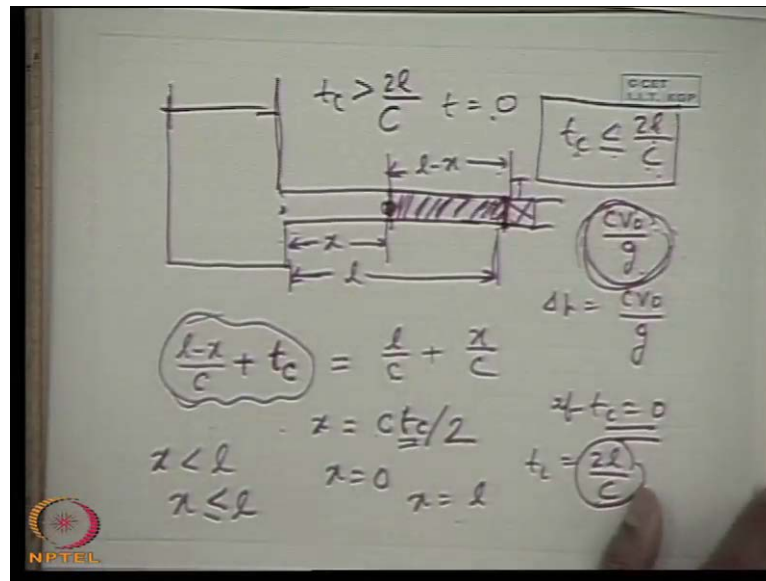 t_c > 2l/C
t = 0
C CET
I.I.T. KGP
t_c ≤ 2l/C
l-x
x
l
CV0/g
Δh = CV0/g
(l-x)/C + t_c = l/C + x/C
x = C t_c/2
t_c = 0
x < l
x = 0
t_c = 2l/C
x ≤ l
x = l
NPTEL